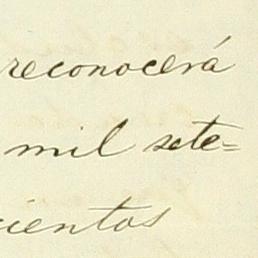 reconocerá
mil sete=
cientos